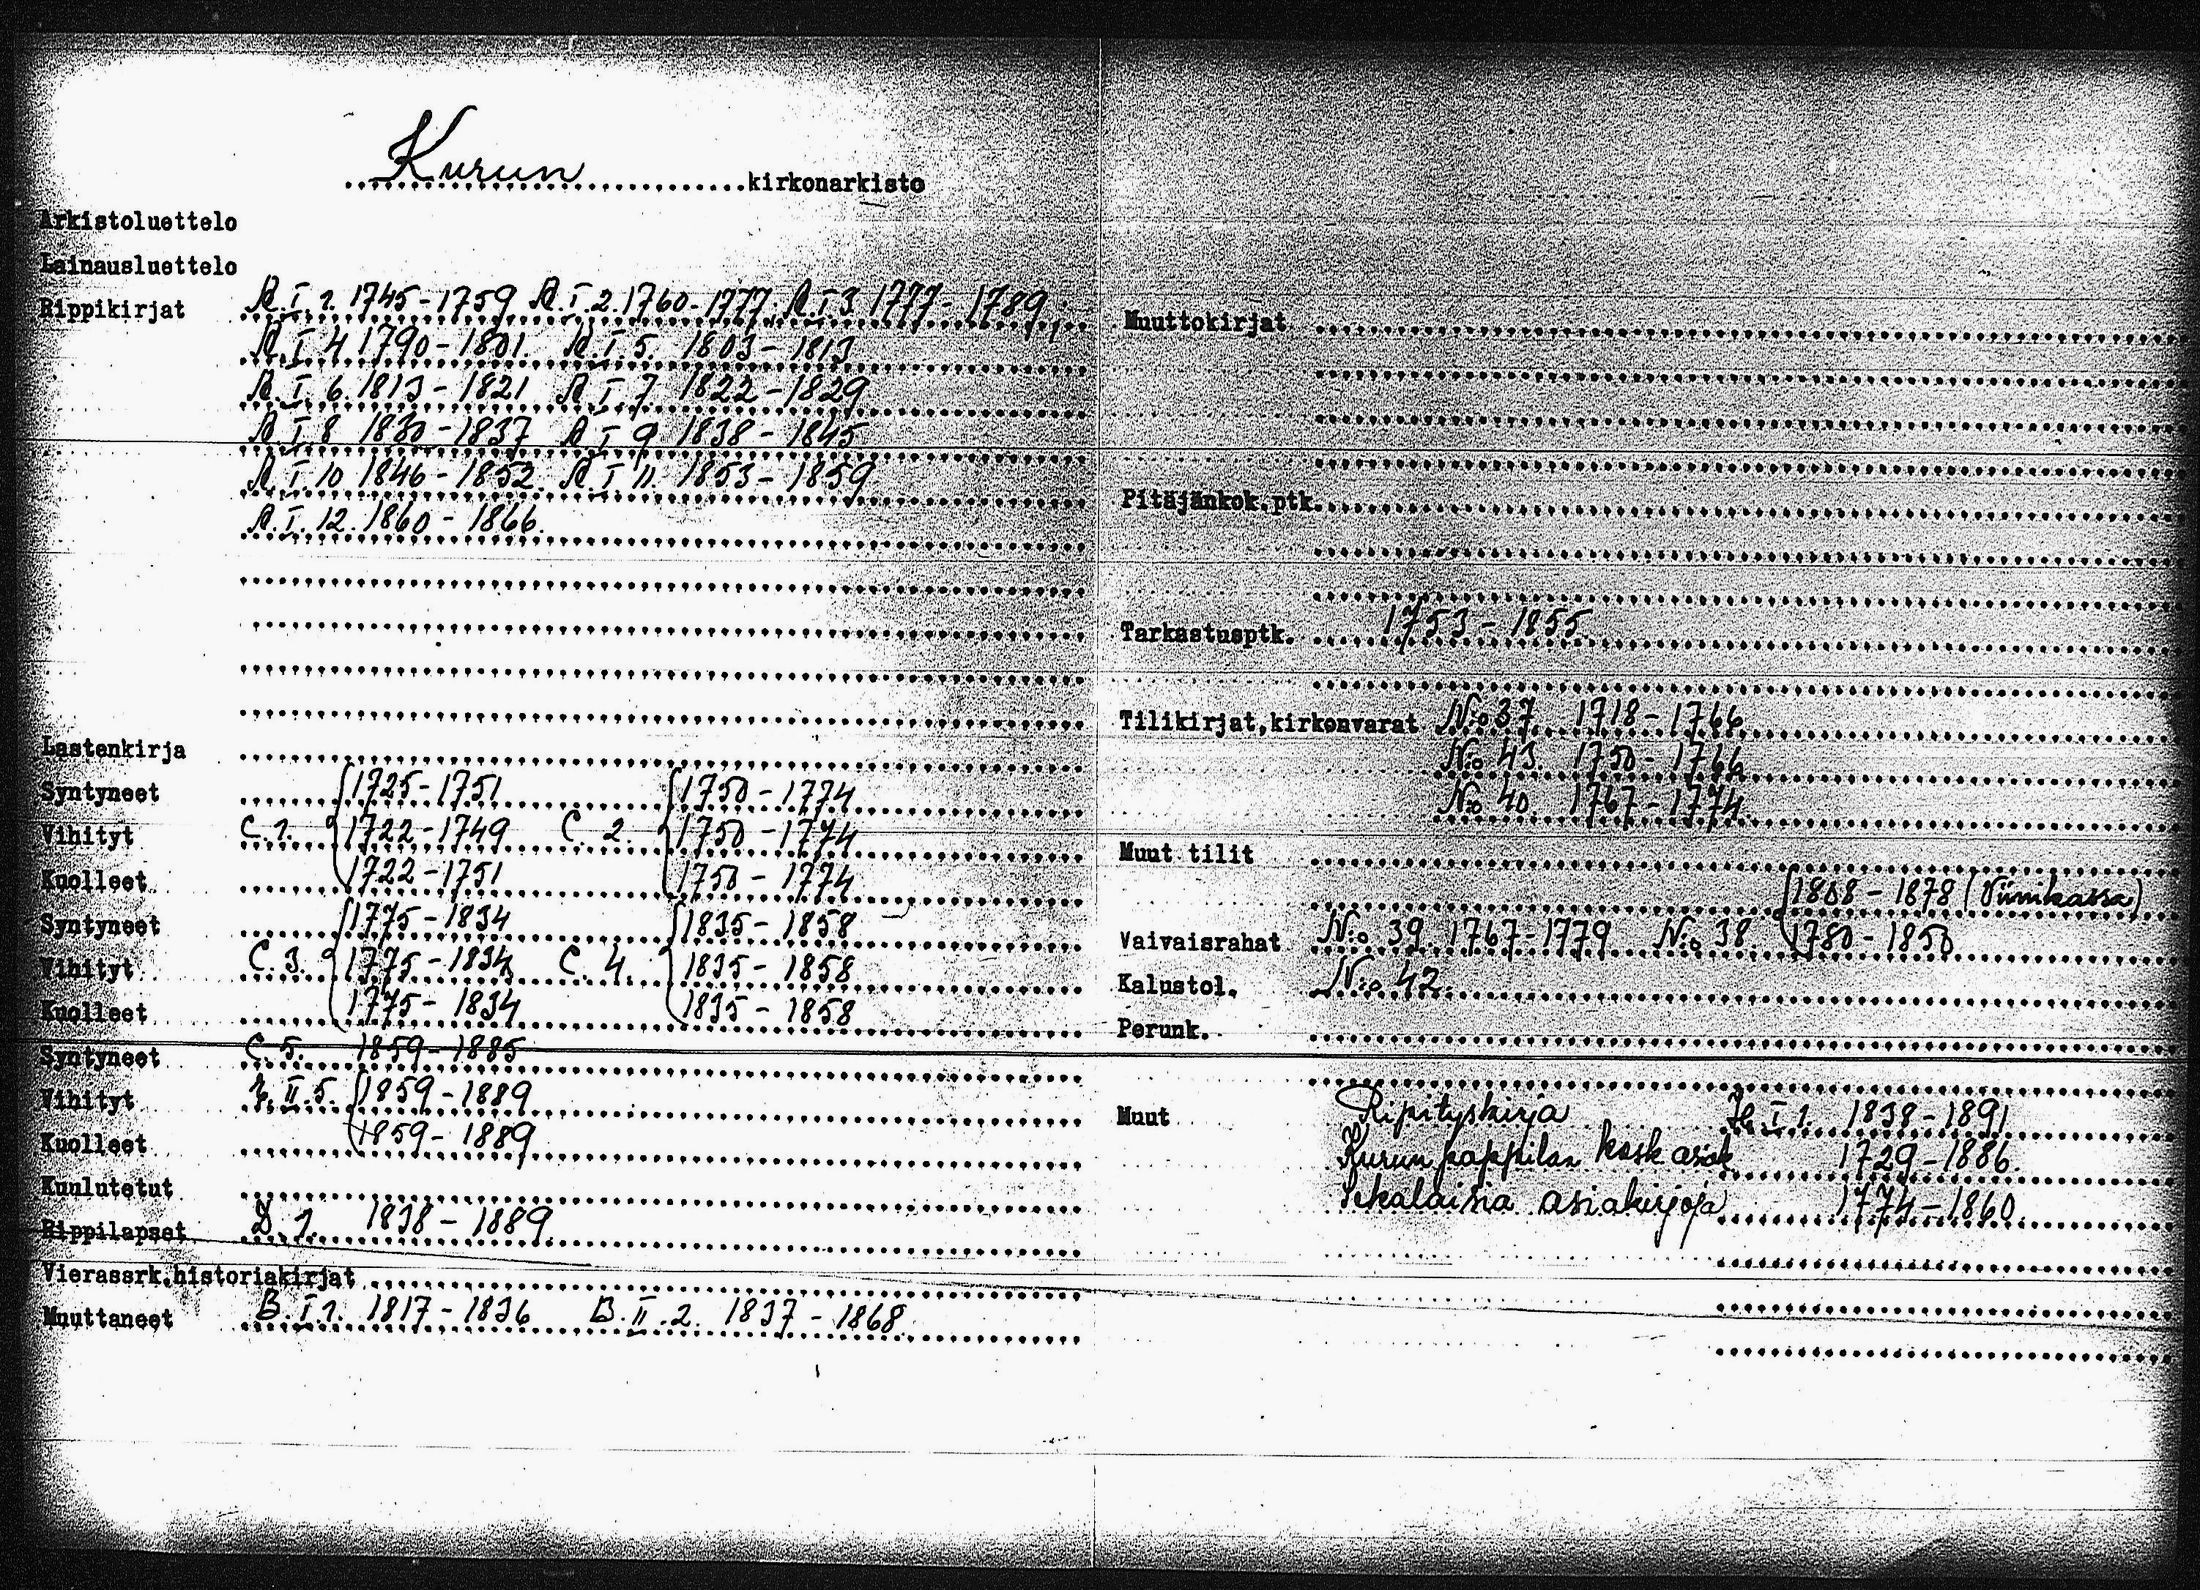 Kurun kirkonarkisto
Arkistoluettelo
Lainausluettelo
Rippikirjat A.I.1. 1745-1759 A.I.2. 1760-1777; A.I.3. 1777-1789;
A.I.4 1790-1801. A.I.5. 1803-1813
A.I.6. 1813-1821 A.I.7 1822-1829
A.I.8 1830-1837 A.I.9 1838-1845
A.I.10 1846-1852. A.I.11. 1853-1859
A.I.12. 1860-1866.
Lastenkirja
Syntyneet 1725-1751 1750-1774
Vihityt C.1. 1722-1749 C.2. 1750-1774
Kuolleet 1722-1751 1750-1774
Syntyneet 1775-1834 1835-1858
Vihityt C.3. 1775-1834 C.4. 1835-1858
Kuolleet 1775-1834 1835-1858
Syntyneet C.5. 1859-1885
Vihityt II.5. 1859-1889
Kuolleet 1859-1889
Kuulutetut
Rippilapset D.1. 1838-1889
Vierassrk.historiakirjat
Muuttaneet B.I.1. 1817-1836 B.II.2. 1837-1868.
Muuttokirjat
Pitäjänkok.ptk.
Tarkastusptk. 1753-1855
Tilikirjat,kirkonvarat N:o 37. 1718-1766
N:o 43. 1750-1766
N:o 40 1767-1774
Muut tilit
1808-1878 (Viinikassa)
Vaivaisrahat N:o 39 1767-1779 N:o 38. 1780-1850
Kalustol. N:o 42.
Perunk.
Muut Ripityskirja I 1. 1838-1891
Kurun pappilan kosk asiak. 1729-1886.
Sekalaisia asiakirjoja 1774-1860